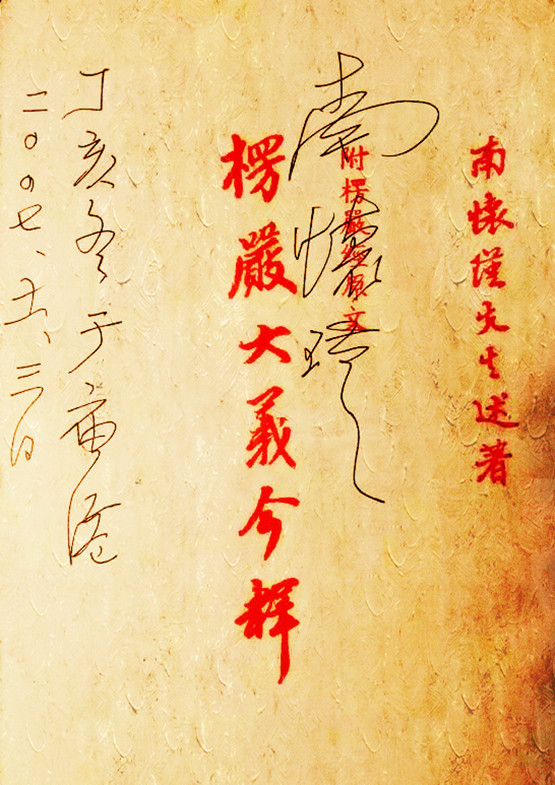 南懷瑾先生述著
附楞嚴經原文
南懷瑾
楞嚴大義今釋
丁亥冬于廟港
二〇〇七、十一、三日